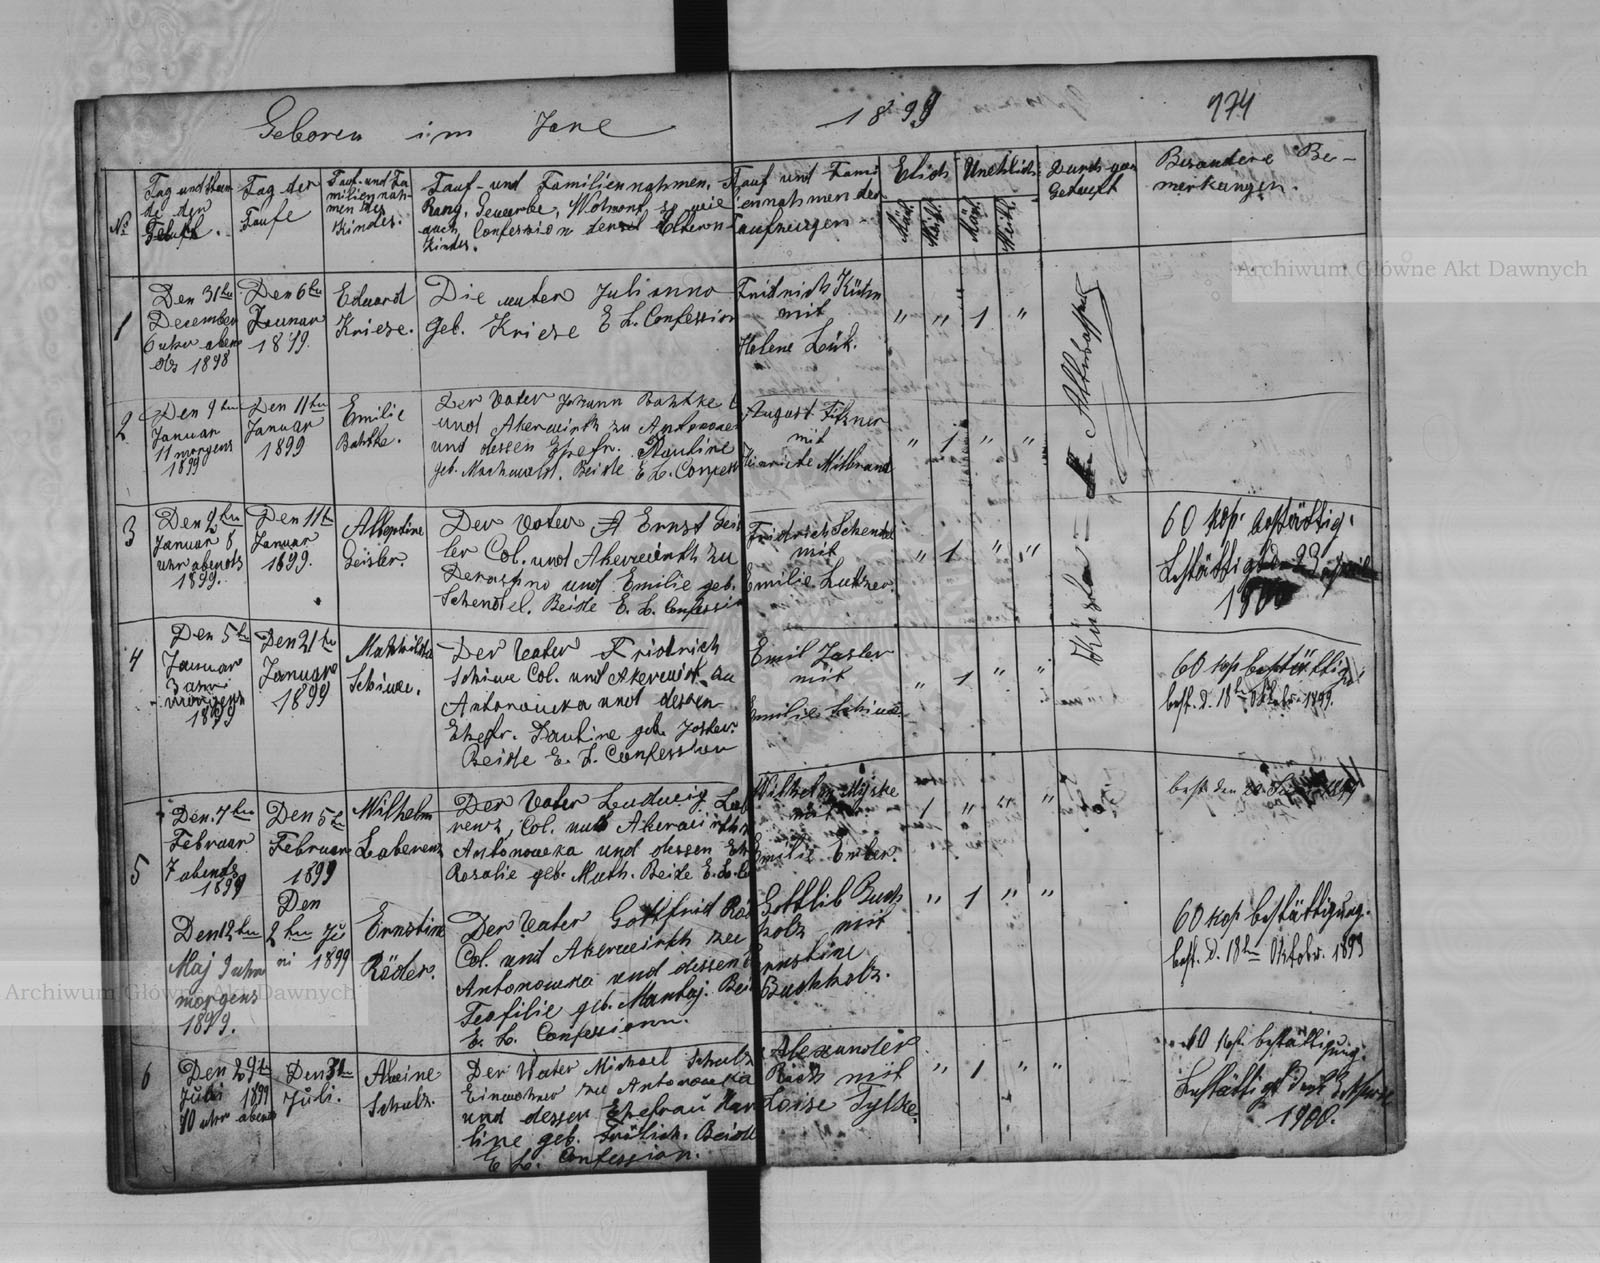 Geboren im Jare
1899
974
№
Tag und Stun-
de der
Tag der
Taufe
Tauf- und Fa-
miliennah-
men des
Kindes.
Tauf- und Familiennahmen,
Rang, Gewerbe, Wohnort, so wie
auch Confession der Eltern
Kindes.
Tauf und Fami
iennahmen der
Taufzeugen
Elich
Unehlich
Mäñ.
Weib.
Mäñ.
Weib.
Durch
Getauft
Besondere Be-
merkungen.
1
Den 31ten
Decembe
6 uhr aben
ds 1898
Den 6ten
Januar
1899.
Eduard
Kriese.
Die muter Julianna
geb. Kriese E. L. Confession
Fridrich Kühn
mit
Helene Lük.
" " 1 "
2
Den 9ten
Januar
11 morgens
1899
Den 11ten
Januar
1899
Emilie
Bahtke.
Der Vater Johann Bahtke
und Akerwirth zu Antonowe
und dessen Ehefr. Pauline
geb. Machuwald. Beide E. L. Confess
August Fitzner
mit
Heinriete Milbrand
" 1 " "
Küster
3
Den 9ten
Januar 8
uhr abends
1899.
Den 11ten
Januar
1899.
Geisler.
Der Vater Ernst Geis
ler Col. und Akerwirth zu
und Emilie geb.
Schendel. Beide E. L. Confessi
Fridrich Schendel
mit
Emilie Lutzner.
" 1 " "
60 kop. bestättig.
Bestättigt
1900
4
Den 5ten
Januar
3
morgens
1899
Den 21ten
Januar
1899
Mathilda
Schiwe.
Der Vater Fridrich
Schiwe Col. und Akerwirt zu
Antonowka und dessen
Ehefr. Pauline geb. Jasler.
Beide E. L. Confession
Emil Jasler
mit
Emilie Schiwe
" 1 " "
60 kop bestättig.
best. d. 18ten Oktober 1899.
5
Den 4ten
Februar
7 abends
1899
Den 5ten
Februar
1899
Wilhelm
Laberenz
Der Vater Ludwig Lab
renz, Col. und Akerwirth
Antonowka und dessen Eh
Rosalie geb. Muth. Beide E. L. Co
Wilhelm Myske
mit
Emilie
1 " " "
best den
Den 12ten
Maj 9 uhr
morgens
1899.
Den
2ten Ju
ni 1899
Ernstine
Röder.
Der Vater Gottfrid Rö
Col. und Akerwirth zu
Antonowka und dessen
Teofilie geb. Mantaj. Bei
E. L. Confession.
Gottlib Buch
holz mit
Ernstine
Buchholz.
" 1 " "
60 kop bestättigung.
best. d. 18ten Oktober. 1899
6
Den 29ten
Juli 1899
10 uhr abend
Den 31ten
Juli.
Alwine
Schulz.
Der Vater Michael Schulz
Einwohner zu Antonowka
und dessen Ehefrau
line geb. Frölich. Beide
E. L. Confession.
Alexander
mit
Loise Tylske.
" 1 " "
60 kop. bestättigung.
Bestättigt
1900.
Archiwum Główne Akt Dawnych
Archiwum Główne Akt Dawnych